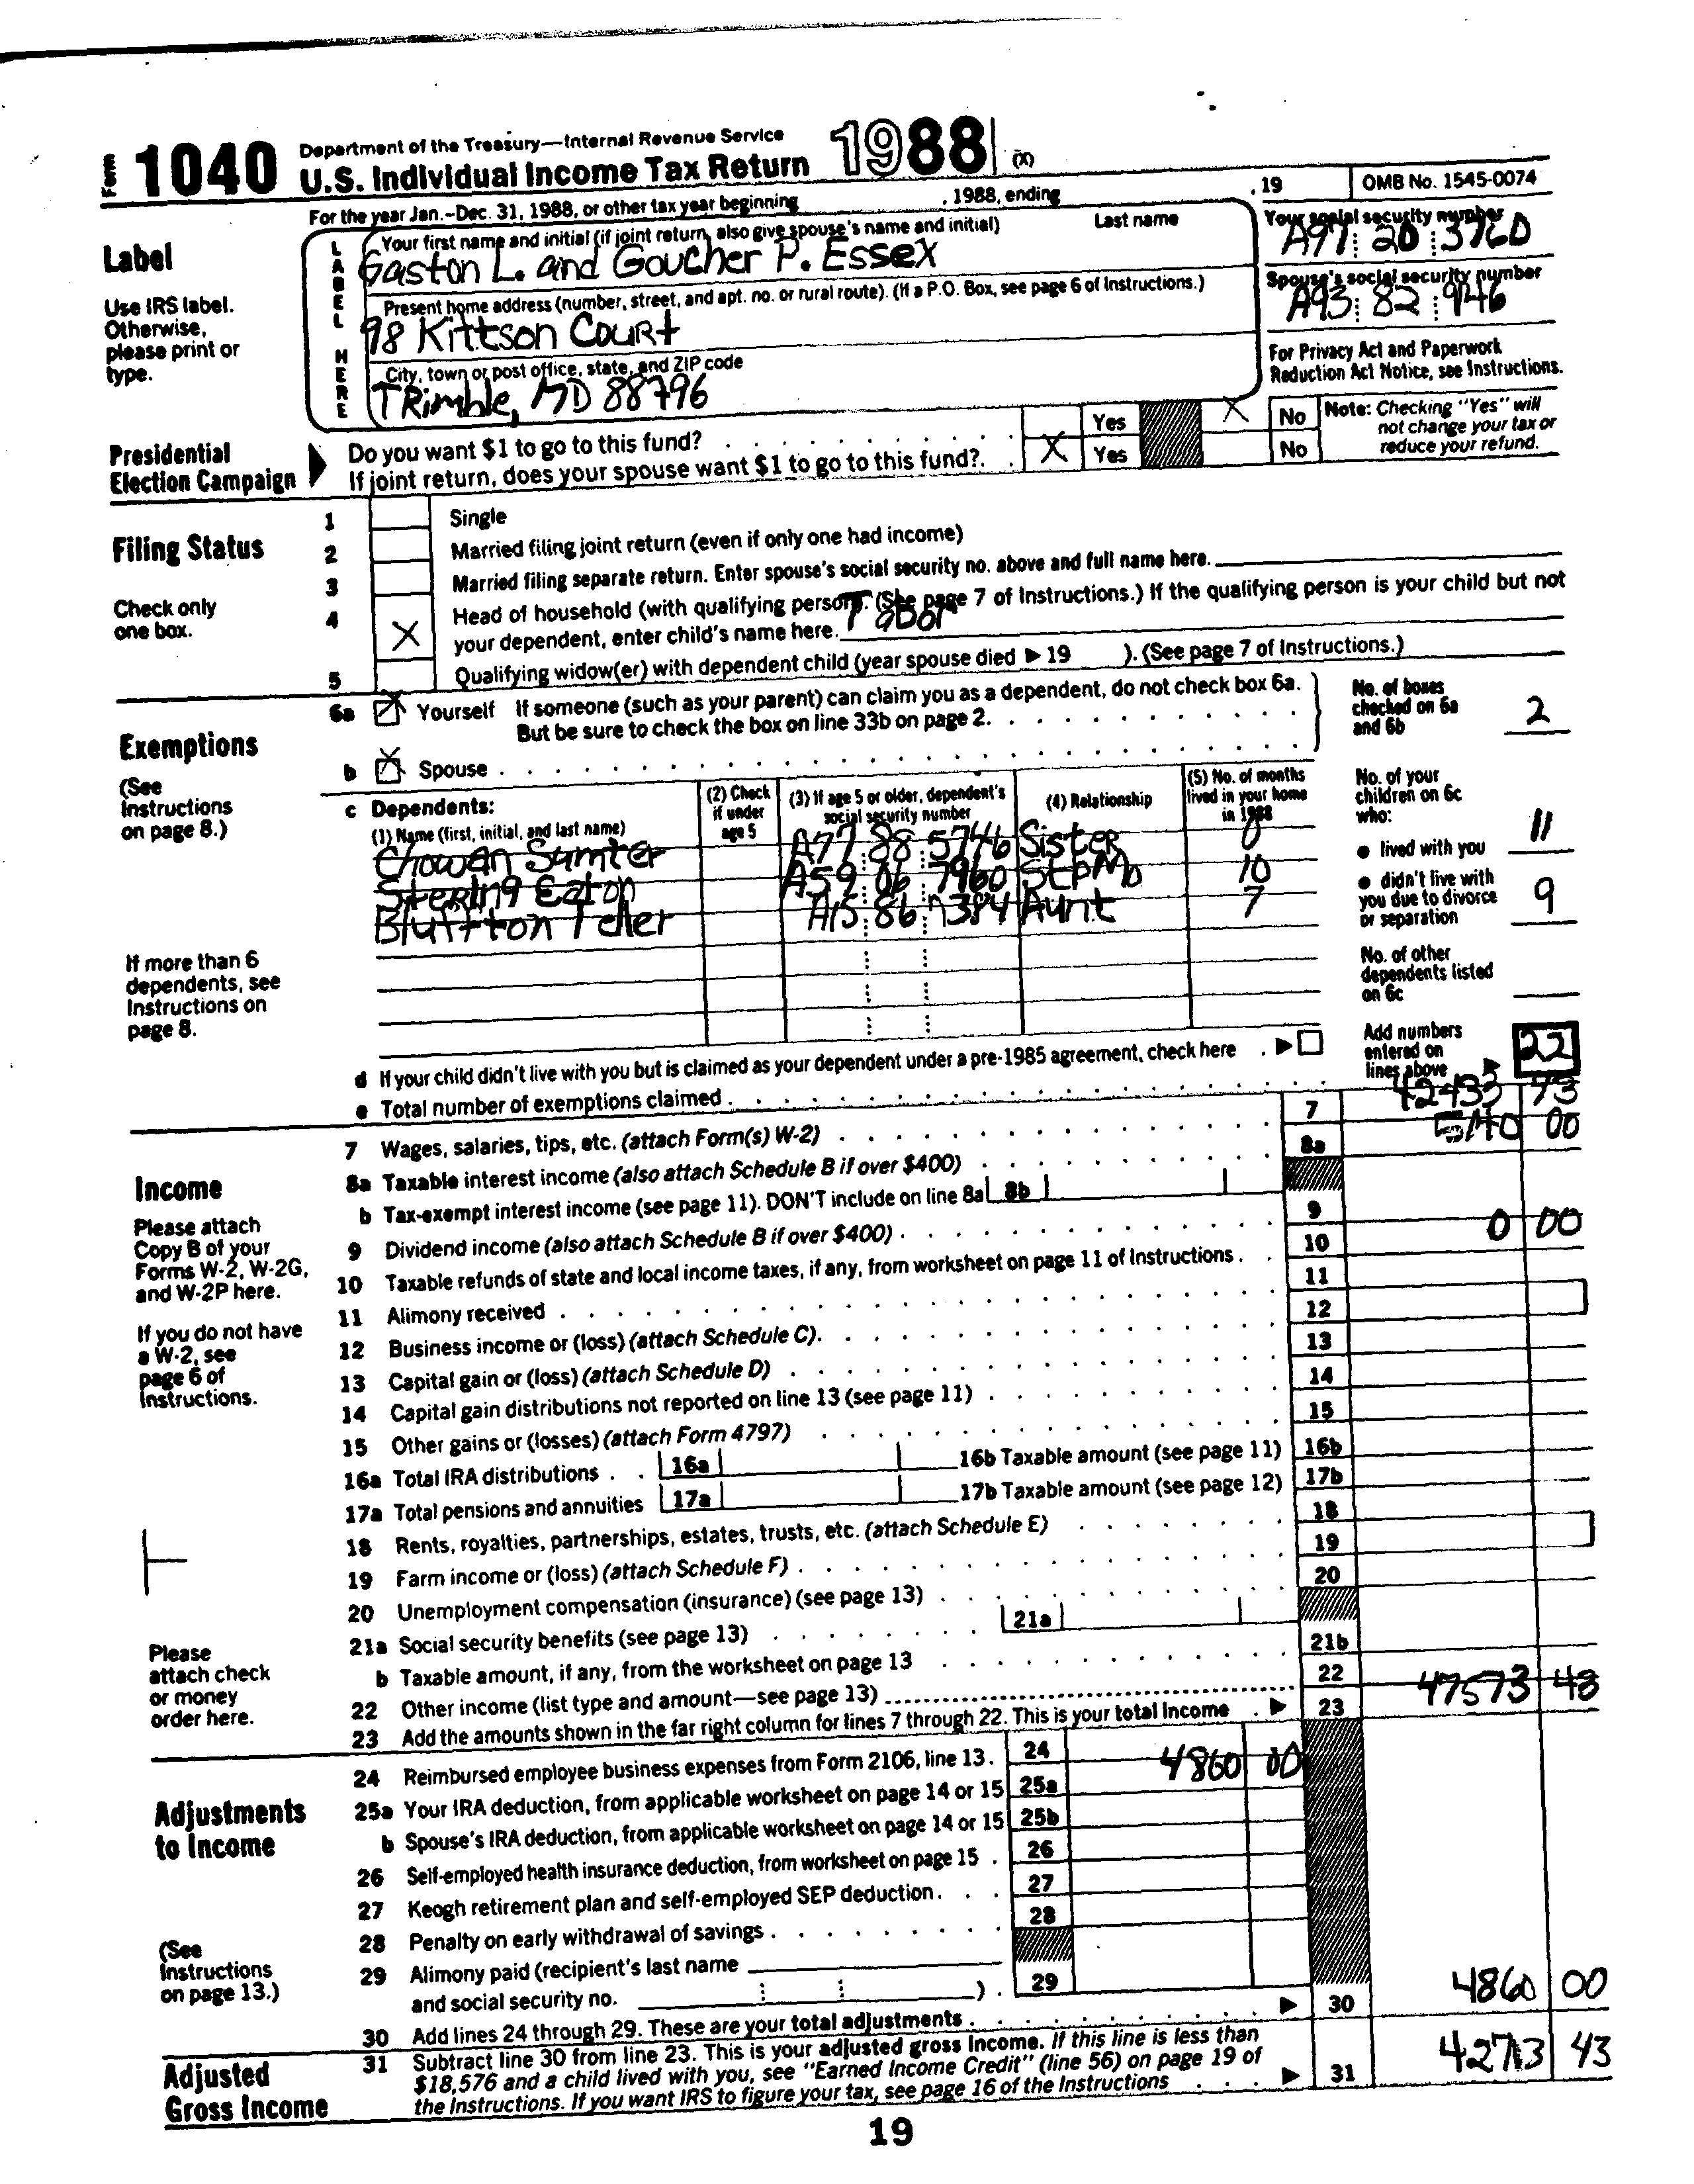 Form 1040 Department of the Treasury—Internal Revenue Service
U.S. Individual Income Tax Return 1988 (X)
For the year Jan.-Dec. 31, 1988, or other tax year beginning , 1988, ending , 19 OMB No. 1545-0074
Label
Use IRS label.
Otherwise,
please print or
type.
LABEL HERE
Your first name and initial (if joint return, also give spouse's name and initial) Last name
Gaston L. and Goucher P. Essex
Your social security number
A97 20 3760
Present home address (number, street, and apt. no. or rural route). (If a P.O. Box, see page 6 of Instructions.)
98 Kittson Court
Spouse's social security number
A93 82 9146
City, town or post office, state, and ZIP code
Trimble, MD 88796
For Privacy Act and Paperwork
Reduction Act Notice, see Instructions.
Presidential
Election Campaign
Do you want $1 to go to this fund? Yes X No
If joint return, does your spouse want $1 to go to this fund? X Yes No
Note: Checking "Yes" will
not change your tax or
reduce your refund.
Filing Status
Check only
one box.
1 Single
2 Married filing joint return (even if only one had income)
3 Married filing separate return. Enter spouse's social security no. above and full name here.
4 X Head of household (with qualifying person). (See page 7 of Instructions.) If the qualifying person is your child but not
your dependent, enter child's name here. Tabor
5 Qualifying widow(er) with dependent child (year spouse died ▶ 19 ). (See page 7 of Instructions.)
Exemptions
(See
Instructions
on page 8.)
6a X Yourself If someone (such as your parent) can claim you as a dependent, do not check box 6a.
But be sure to check the box on line 33b on page 2.
b X Spouse
No. of boxes
checked on 6a
and 6b 2
c Dependents:
(1) Name (first, initial, and last name)
(2) Check
if under
age 5
(3) If age 5 or older, dependent's
social security number
(4) Relationship
(5) No. of months
lived in your home
in 1988
Chowan Sumter A77 88 5746 Sister 0
Sterling Eaton A59 06 7960 StpMo 10
Bluffton Teller A15 86 7384 Aunt 7
No. of your
children on 6c
who:
● lived with you 11
● didn't live with
you due to divorce
or separation 9
No. of other
dependents listed
on 6c
If more than 6
dependents, see
Instructions on
page 8.
d If your child didn't live with you but is claimed as your dependent under a pre-1985 agreement, check here ▶
e Total number of exemptions claimed
Add numbers
entered on
lines above ▶ 22
Income
Please attach
Copy B of your
Forms W-2, W-2G,
and W-2P here.
If you do not have
a W-2, see
page 6 of
Instructions.
Please
attach check
or money
order here.
7 Wages, salaries, tips, etc. (attach Form(s) W-2) 7 42433 43
8a Taxable interest income (also attach Schedule B if over $400) 8a 5140 00
b Tax-exempt interest income (see page 11). DON'T include on line 8a 8b
9 Dividend income (also attach Schedule B if over $400) 9
10 Taxable refunds of state and local income taxes, if any, from worksheet on page 11 of Instructions 10 0 00
11 Alimony received 11
12 Business income or (loss) (attach Schedule C) 12
13 Capital gain or (loss) (attach Schedule D) 13
14 Capital gain distributions not reported on line 13 (see page 11) 14
15 Other gains or (losses) (attach Form 4797) 15
16a Total IRA distributions 16a 16b Taxable amount (see page 11) 16b
17a Total pensions and annuities 17a 17b Taxable amount (see page 12) 17b
18 Rents, royalties, partnerships, estates, trusts, etc. (attach Schedule E) 18
19 Farm income or (loss) (attach Schedule F) 19
20 Unemployment compensation (insurance) (see page 13) 20
21a Social security benefits (see page 13) 21a
b Taxable amount, if any, from the worksheet on page 13 21b
22 Other income (list type and amount—see page 13) 22
23 Add the amounts shown in the far right column for lines 7 through 22. This is your total income ▶ 23 47573 43
Adjustments
to Income
(See
Instructions
on page 13.)
24 Reimbursed employee business expenses from Form 2106, line 13. 24 4860 00
25a Your IRA deduction, from applicable worksheet on page 14 or 15 25a
b Spouse's IRA deduction, from applicable worksheet on page 14 or 15 25b
26 Self-employed health insurance deduction, from worksheet on page 15 26
27 Keogh retirement plan and self-employed SEP deduction 27
28 Penalty on early withdrawal of savings 28
29 Alimony paid (recipient's last name
and social security no. ) 29
30 Add lines 24 through 29. These are your total adjustments ▶ 30 4860 00
Adjusted
Gross Income
31 Subtract line 30 from line 23. This is your adjusted gross income. If this line is less than
$18,576 and a child lived with you, see "Earned Income Credit" (line 56) on page 19 of
the Instructions. If you want IRS to figure your tax, see page 16 of the Instructions ▶ 31 42713 43
19